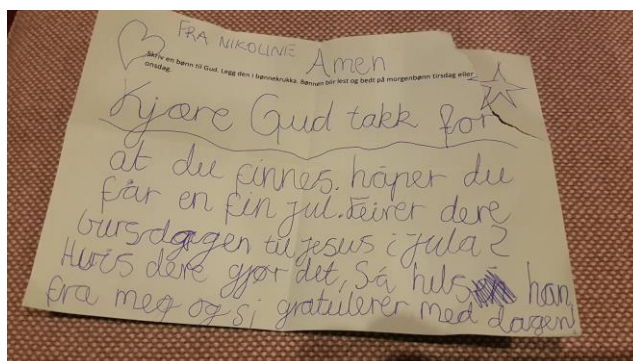 FRA NIKOLINE
Amen
Skriv en bønn til Gud. Legg den i bønnekrukka. Bønnen blir lest og bedt på morgenbønn tirsdag eller
onsdag.
Kjære Gud takk for
at du finnes. håper du
får en fin jul. Feirer dere
bursdagen til jesus i jula?
Hvis dere gjør det, så hils han
fra meg og si gratulerer med dagen!